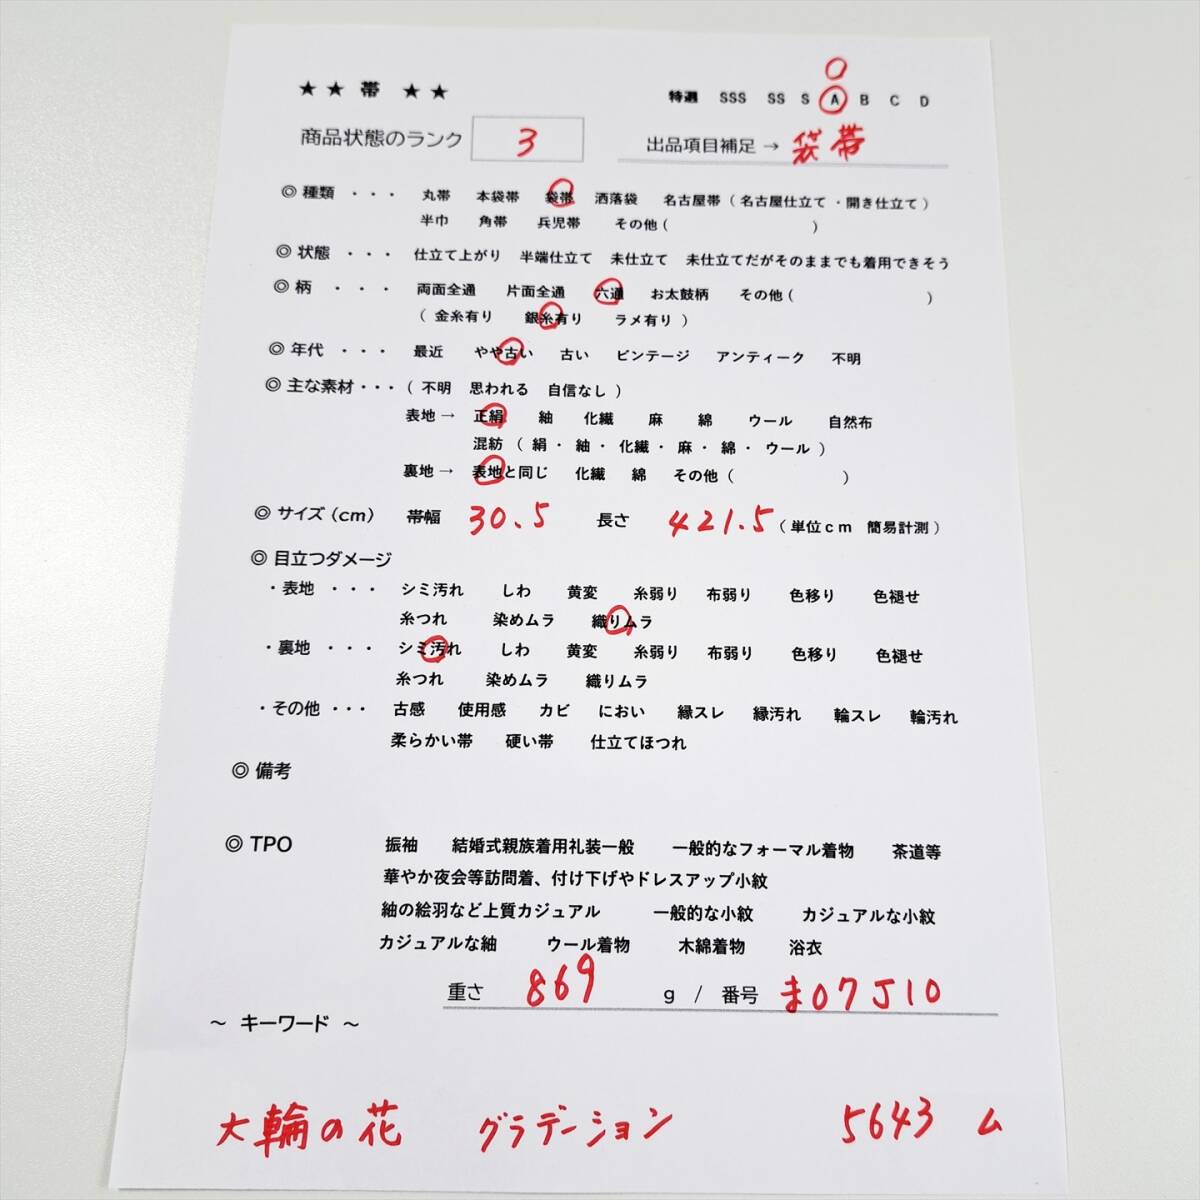 ★★ 帯 ★★
特選 SSS SS S A B C D
商品状態のランク 3 出品項目補足→ 袋帯
◎ 種類 ・・・ 丸帯 本袋帯 袋帯 洒落袋 名古屋帯（名古屋仕立て・開き仕立て）
半巾 角帯 兵児帯 その他（ ）
◎ 状態 ・・・ 仕立て上がり 半端仕立て 未仕立て 未仕立てだがそのままでも着用できそう
◎ 柄 ・・・ 両面全通 片面全通 六通 お太鼓柄 その他（ ）
（ 金糸有り 銀糸有り ラメ有り ）
◎ 年代 ・・・ 最近 やや古い 古い ビンテージ アンティーク 不明
◎ 主な素材・・・（ 不明 思われる 自信なし ）
表地→ 正絹 紬 化繊 麻 綿 ウール 自然布
混紡 （ 絹・ 紬・ 化繊・ 麻・ 綿・ ウール ）
裏地→ 表地と同じ 化繊 綿 その他（ ）
◎ サイズ（cm） 帯幅 30.5 長さ 421.5（単位cm 簡易計測）
◎ 目立つダメージ
・表地 ・・・ シミ汚れ しわ 黄変 糸弱り 布弱り 色移り 色褪せ
糸つれ 染めムラ 織りムラ
・裏地 ・・・ シミ汚れ しわ 黄変 糸弱り 布弱り 色移り 色褪せ
糸つれ 染めムラ 織りムラ
・その他 ・・・ 古感 使用感 カビ におい 縁スレ 縁汚れ 輪スレ 輪汚れ
柔らかい帯 硬い帯 仕立てほつれ
◎ 備考
◎ TPO 振袖 結婚式親族着用礼装一般 一般的なフォーマル着物 茶道等
華やか夜会等訪問着、付け下げやドレスアップ小紋
紬の絵羽など上質カジュアル 一般的な小紋 カジュアルな小紋
カジュアルな紬 ウール着物 木綿着物 浴衣
重さ 869 g / 番号 ま07J10
～ キーワード ～
大輪の花 グラデーション 5643 ム